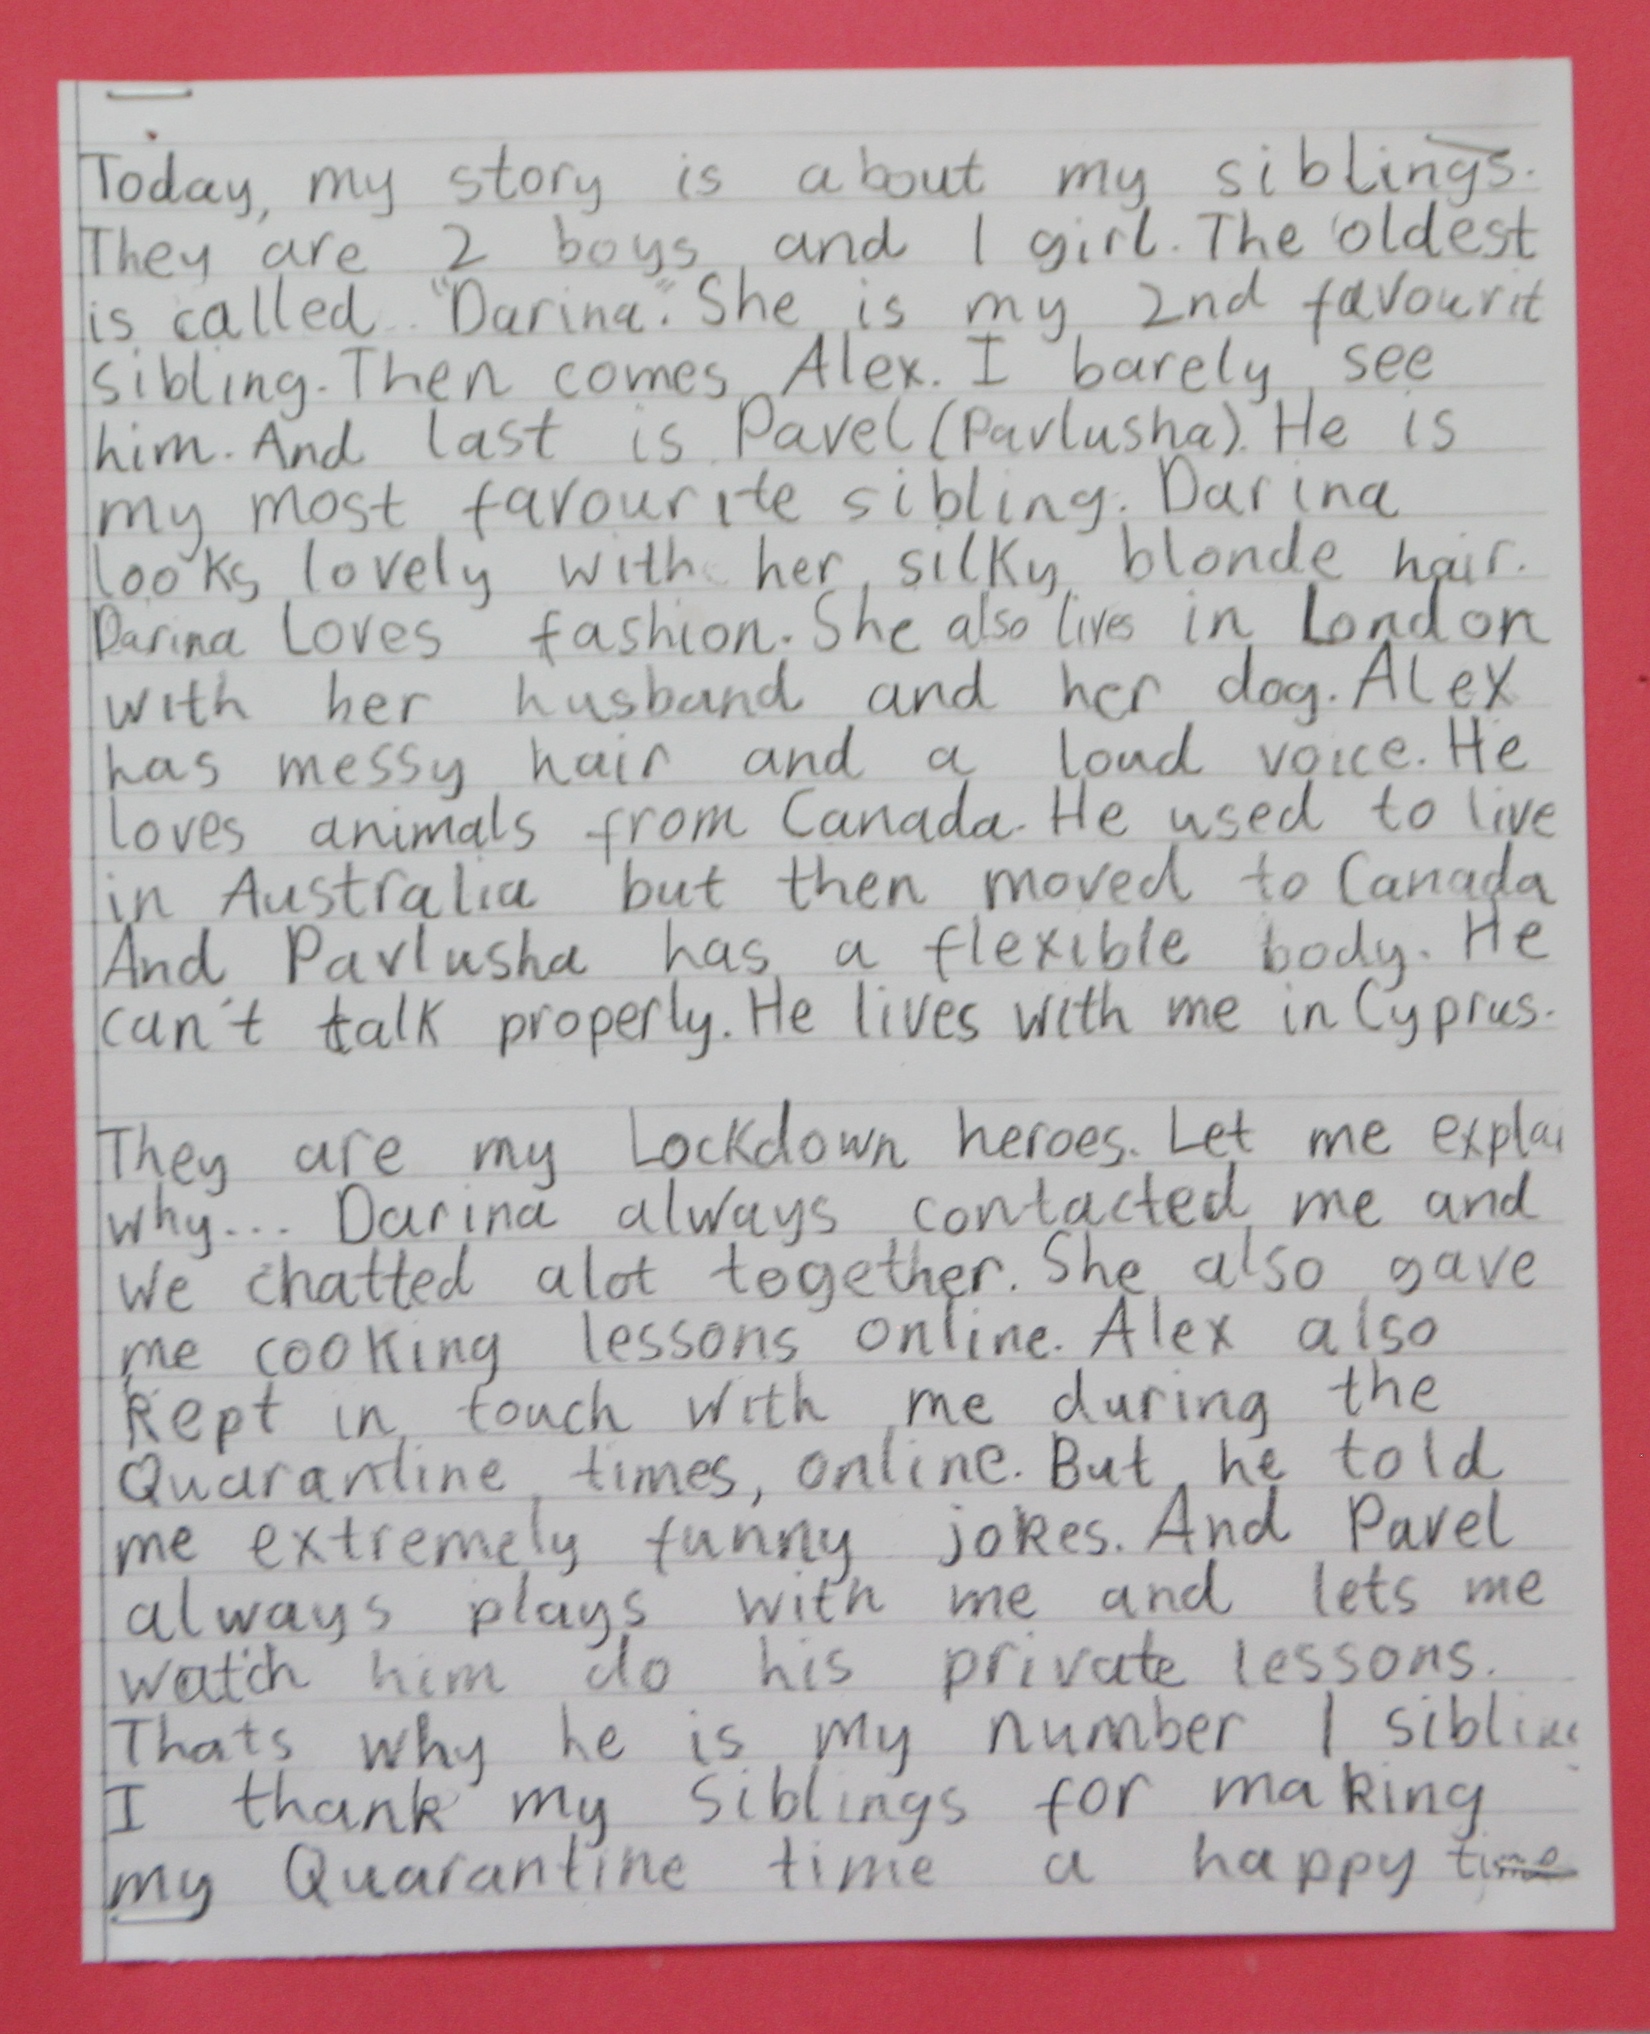 Today, my story is about my siblings.
They are 2 boys and 1 girl. The oldest
is called "Darina". She is my 2nd favourit
sibling. Then comes Alex. I barely see
him. And last is Pavel (Pavlusha). He is
my most favourite sibling. Darina
looks lovely with her silky blonde hair.
Darina loves fashion. She also lives in London
with her husband and her dog. Alex
has messy hair and a loud voice. He
loves animals from Canada. He used to live
in Australia but then moved to Canada
And Pavlusha has a flexible body. He
can't talk properly. He lives with me in Cyprus.
They are my Lockdown heroes. Let me explai
why... Darina always contacted me and
we chatted alot together. She also gave
me cooking lessons online. Alex also
kept in touch with me during the
Quarantine times, online. But he told
me extremely funny jokes. And Pavel
always plays with me and lets me
watch him do his private lessons.
Thats why he is my number 1 sibling
I thank my siblings for making
my Quarantine time a happy time